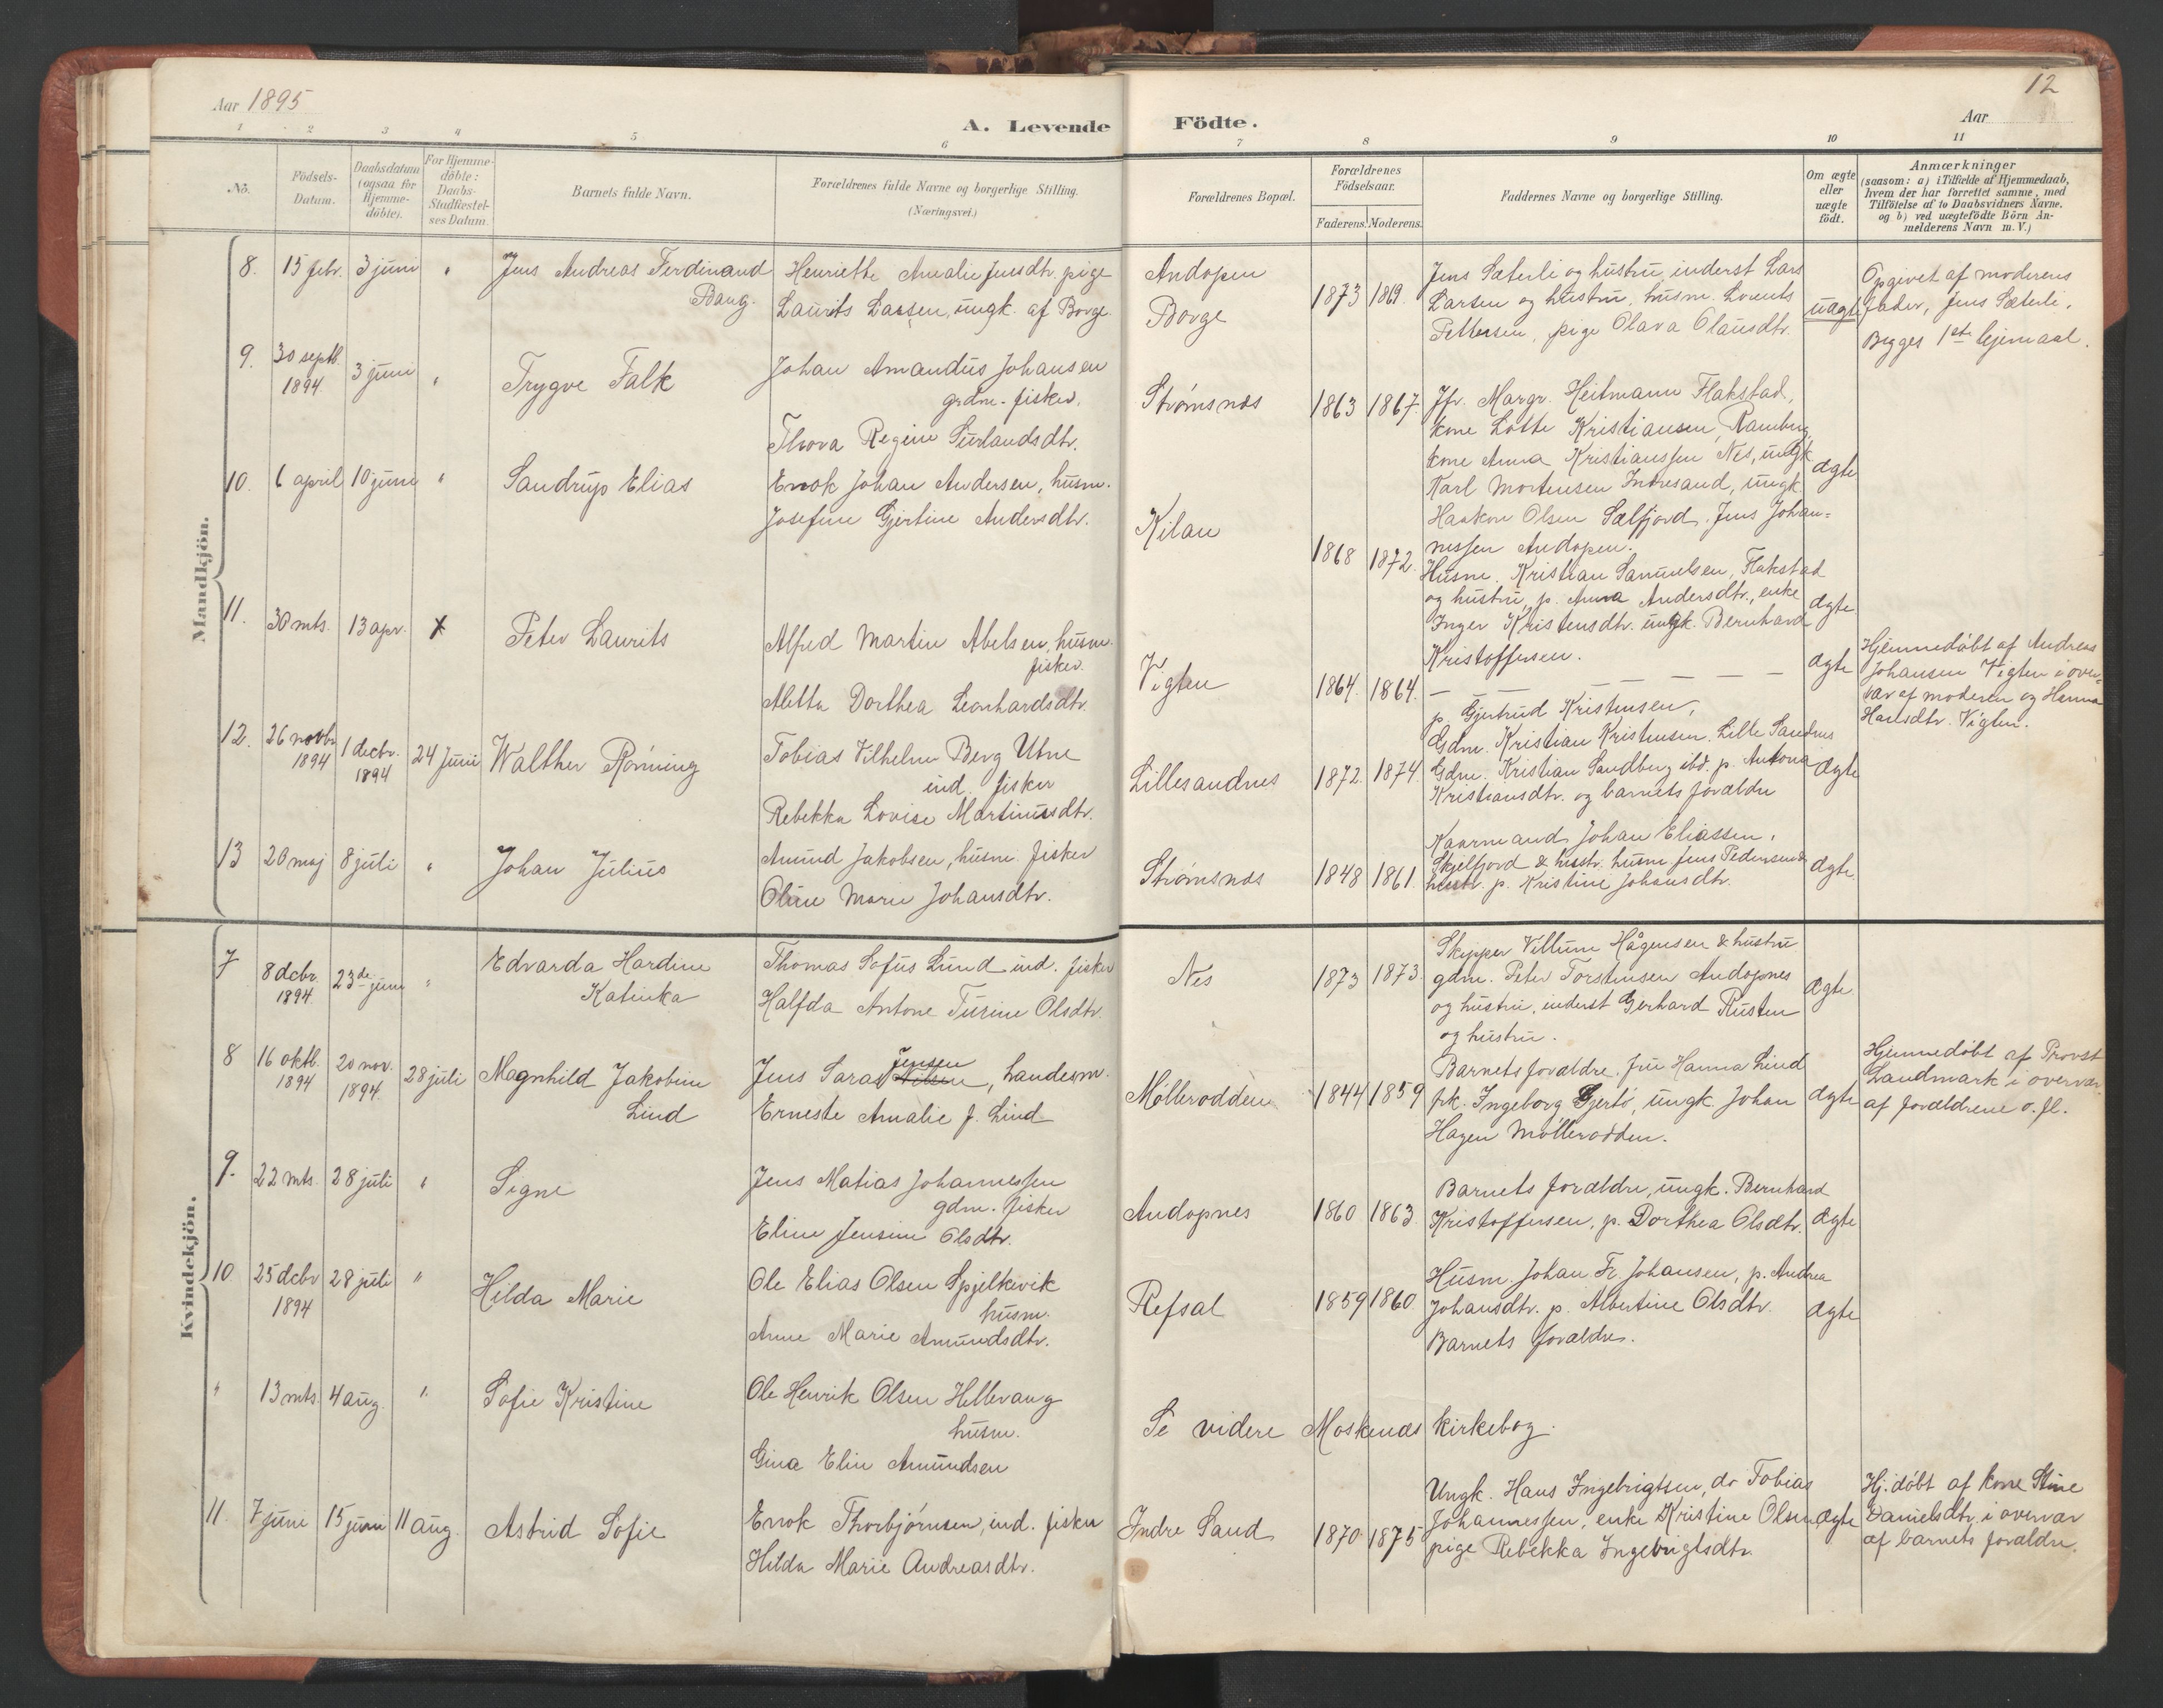 Aar 1895
12
A. Levende Födte.
Aar
1 2 3 4 5 6 7 8 9 10 11
No.
Födsels-
Datum.
Daabsdatum
(ogsaa for
Hjemme-
döbte).
For Hjemme-
döbte:
Daabs-
Stadfæstel-
ses Datum.
Barnets fulde Navn.
Forældrenes fulde Navne og borgerlige Stilling.
(Næringsvei.)
Forældrenes Bopæl.
Forældrenes
Födselsaar.
Faderens. Moderens.
Faddernes Navne og borgerlige Stilling.
Om ægte
eller
uægte
födt.
Anmærkninger
(saasom: a) i Tilfælde af Hjemmedaab,
hvem der har forrettet samme, med
Tilföielse af to Daabsvidners Navne.
og b) ved uægtefödte Börn An-
melderens Navn m. V.)
Mandkjön.
8. 15 febr. 3 juni "
Jens Andreas Ferdinand
Baug.
Henriette Amalie Jensdtr. pige
Laurits Larsen, ungk. af Borge.
Andopen
Borge
1873 1869.
Jens Sæterli og hustru, inderst Lars
Larsen og hustru, husm. Lorents
Pettersen, pige Olava Olausdtr.
uægte
Opgivet af moderens
fader, Jens Sæterli.
Begges 1ste leiermaal.
9. 30 septb.
1894
3 juni "
Trygve Falk
Johan Amandus Johansen
grdm. fisker.
Thora Regine Surlandsdtr.
Strømsnæs
1863 1867.
Jfr. Margr. Heitmann Flakstad,
kone Lotte Kristiansen, Ramberg,
kone Anna Kristianssen Nes, ungk.
Karl Mortensen Indresand, ungk.
Haakon Olsen Sælfjord. Jens Johan-
nessen Andopen.
ægte
10. 6 april 10 juni "
Sandrup Elias
Enok Johan Andersen, husm.
Josefine Gjertine Andersdtr.
Kilan
1868 1872.
Husm. Kristian Samuelsen, Flakstad
og hustru, p. Anna Andersdtr., enke
Inger Kristensdtr. ungk. Bernhard
Kristoffersen.
ægte
11. 30 mts. 13 apr. x
Peter Laurits
Alfred Martin Abelsen, husm.
fisker.
Aletta Dorthea Leonhardsdtr.
Vigten
1864. 1864.
— — — — — — —
ægte
Hjemmedøbt af Andreas
Johansen Vigten i over-
vær af moderen og Hanna
Hansdtr. Vigten.
12. 26 novbr.
1894
1 decbr.
1894
24 Juni
Walther Rønning
Tobias Vilhelm Berg Utne
ind. fisker
Rebekka Lovise Martinusdtr.
Lillesandnes
1872. 1874.
p. Gjertrud Kristensen,
Gdm. Kristian Kristensen. Lille Sandnes
Gdm. Kristian Sandberg ibd. p. Antona
Kristiansdtr. og barnets forældre
ægte
13 20 maj 8 juli "
Johan Julius
Amund Jakobsen, husm. fisker
Oline Marie Johansdtr.
Strømsnæs
1848 1861.
Kaarmand Johan Eliassen,
Skjelfjord & hustr. husm. Jens Pedersen &
hustr. p. Kristine Johansdtr.
ægte.
Kvindekjön.
7 8 dcbr.
1894.
23de juni "
Edvarda Hardine
Katinka
Thomas Sofus Lund ind. fisker
Halfda Antone Turine Olsdtr.
Nes
1873 1873.
Skipper Villum Hågensen & hustru
gdm. Peter Torstensen Andopnes
og hustru, inderst Gerhard Rusten
og hustru.
ægte
8 16 oktb.
1894
20 nov.
1894.
28 juli
Magnhild Jakobine
Lind
Jensen
Jens Saras Nilsen, handelsm.
Erneste Amalie f. Lind
Mølleroddden
1844 1859
Barnets forældre. fru Hanna Lind
frk. Ingeborg Gjertø, ungk. Johan
Hagen Mølleroddden.
ægte
Hjemmedøbt af Provst
Landmark i overvær
af forældrene o. fl.
9. 22 mts. 28 juli "
Signe
Jens Matias Johannessen
gdm. fisker
Eline Jensine Olsdtr.
Andopnes
1860 1863.
Barnets forældre, ungk. Bernhard
Kristoffersen, p. Dorthea Olsdtr.
ægte
10 25 dcbr
1894
28 juli "
Hilda Marie
Ole Elias Olsen Spjelkevik
husm.
Anne Marie Amundsdtr.
Refsal
1859 1860.
Husm. Johan Fr. Johansen, p. Andrea
Johansdtr. p. Albertine Olsdtr.
Barnets forældre.
ægte
" 13 mts. 4 aug. "
Sofie Kristine
Ole Henrik Olsen Hellevang
husm.
Gina Elin Amundsen
Se videre Moskenæs kirkebog.
11. 7 juni 15 juni 11 aug.
Astrid Sofie
Enok Thorbjørnsen, ind. fisker
Hilda Marie Andreasdtr.
Indre Sand
1870 1875
Ungk. Hans Ingebrigtsen, do Tobias
Johannessen, enke Kristine Olsen
pige Rebekka Ingebrigtsdtr.
ægte
Hj. døbt af kone Stine
Danielsdtr. i overvær
af barnets forældre.